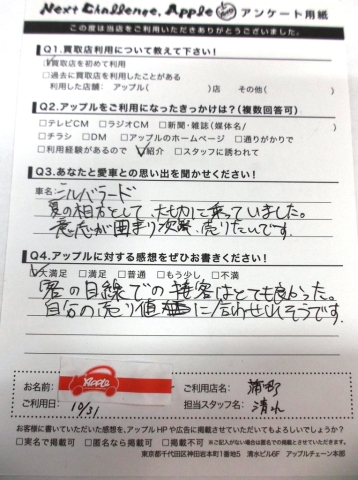 Next Challenge. Apple アンケート用紙
この度は当店をご利用いただきありがとうございました。
Q1.買取店利用について教えて下さい!
☑買取店を初めて利用
□過去に買取店を利用したことがある
利用した店舗: アップル( )店 その他( )
Q2.アップルをご利用になったきっかけは?(複数回答可)
□テレビCM □ラジオCM □新聞・雑誌(媒体名/ )
□チラシ □DM □アップルのホームページ □通りがかりで
□利用経験があるので ☑紹介 □スタッフに誘われて
Q3.あなたと愛車との思い出を聞かせください!
車名: シルバラード
夏の相方として、大切に乗っていました。
意志が固まり次第、売りたいです。
Q4.アップルに対する感想をぜひお書きください!
☑大満足 □満足 □普通 □もう少し □不満
客の目線での接客はとても良かった。
自分の売り値に合わせれそうです。
お名前:
Apple
ご利用店名: 蒲郡
ご利用日: 10/31
担当スタッフ名: 清水
お客様に書いていただいた感想を、アップルHPや広告に掲載させていただいてもよろしいでしょうか?
□実名で掲載可 □匿名なら掲載可 □掲載不可 ※ご記入がない場合は匿名での掲載とさせていただきます。
東京都千代田区神田岩本町1番地5 清水ビル6F アップルチェーン本部